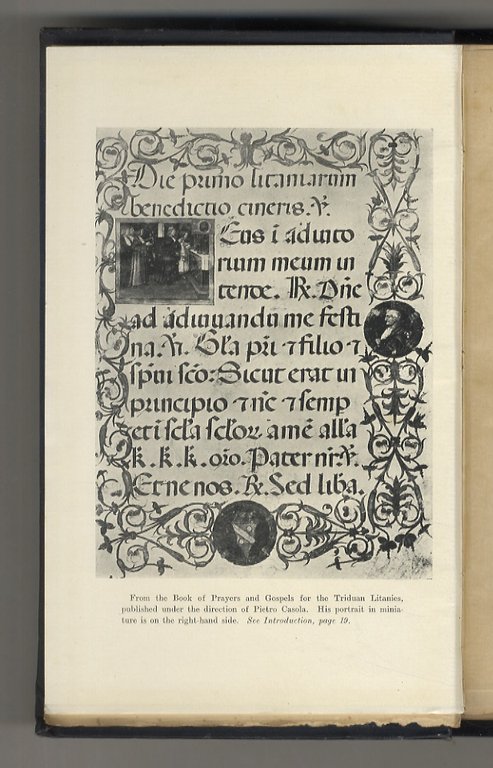 Die primo litaniarum
benedictio cineris. ℣.
Eus ī adiuto
rium meum in
tende. ℟. Dñe
ad adiuuandū me festi
na. ℣. Gľa pr̄i ⁊ filio ⁊
sp̄ui scō: Sicut erat in
principio ⁊ nc̄ ⁊ semp
et ī scľa scľor. amē allá
k. k. k. oro. Pater nr̄. ℣.
Et ne nos. ℟. Sed liba.
From the Book of Prayers and Gospels for the Triduan Litanies,
published under the direction of Pietro Casola. His portrait in minia-
ture is on the right-hand side. See Introduction, page 19.